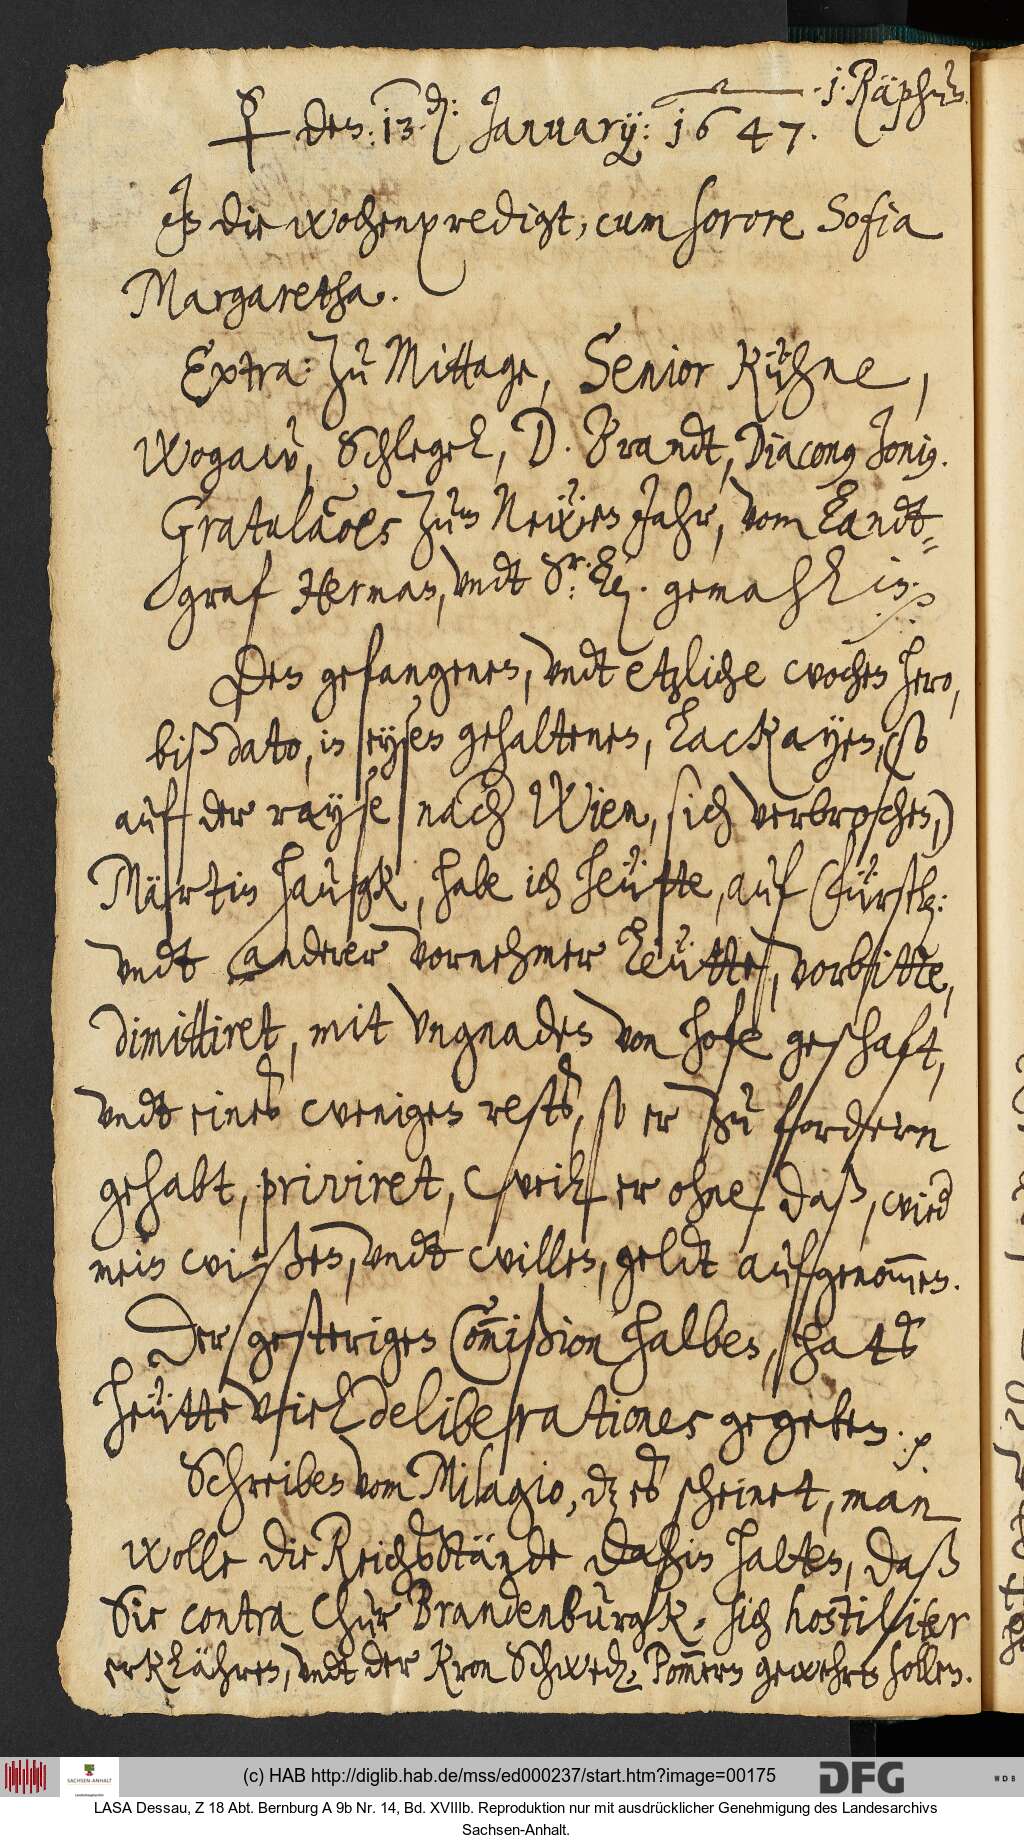 1. Räphün.
den: 13.d: January: 1647.
In die wochenpredigt, cum sorore Sofia
Margaretha.
Extra: zu Mittage, Senior Kühne,
Wogaw, Schlegel, D. Brandt, Diaconus Jonius.
Gratulat̄iones zum Neẅen Jahr, vom Landt-
graf Herman, vndt Sr: Ld. gemahlin. p
Den gefangenen, vndt etzliche wochen hero,
biß dato, in eysen gehaltenen, Lackayen, (so
auf der rayse nach Wien, sich verbrochen,)
Märtin Hausgk, habe ich heütte, auf Fürstl:
vndt anderer vornehmer Leütte, vorbitte,
dimittiret, mit vngnaden von hofe geschaft,
vndt eines wenigen rests, so er zu fordern
gehabt, priviret, weil er ohne daß, wied
mein wißen, vndt willen, geldt aufgenom̄en.
Der gesterigen Com̄ißion halben, hats
heütte viel deliberationes gegeben. p
Schreiben vom Milagio, dz es scheinet, man
wolle die Reichsstände dahin halten, daß
Sie contra Chur Brandenburgk, sich hostiliter
erklähren, vndt der Kron Schwed: Pom̄ern gewehren sollen.
(c) HAB http://diglib.hab.de/mss/ed000237/start.htm?image=00175
SACHSEN-ANHALT
DFG
WDB
LASA Dessau, Z 18 Abt. Bernburg A 9b Nr. 14, Bd. XVIIIb. Reproduktion nur mit ausdrücklicher Genehmigung des Landesarchivs
Sachsen-Anhalt.